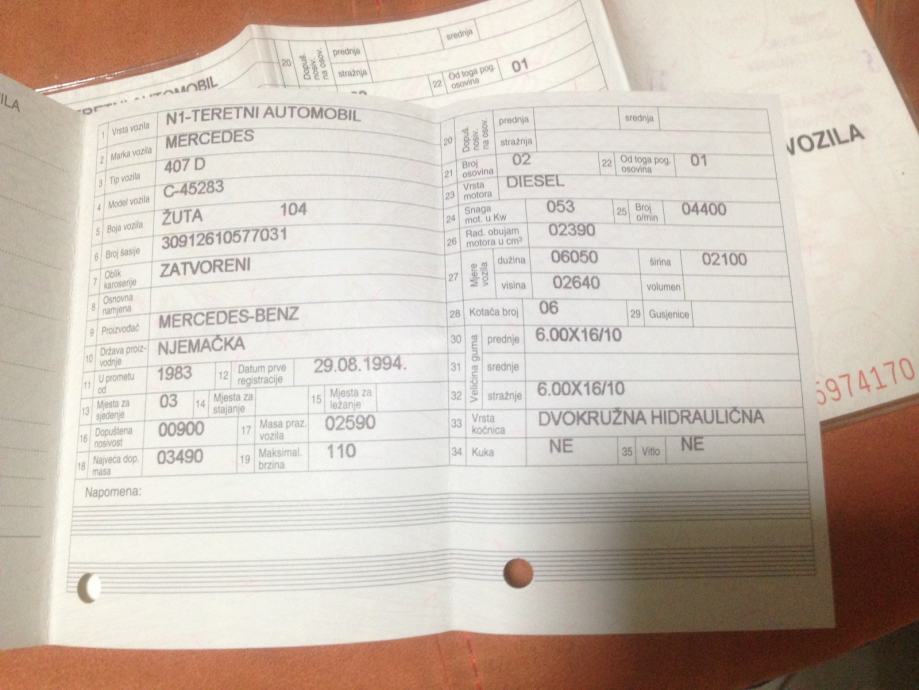 ZILA
RETNI AUTOMOBIL
20 Dopuš. nosiv. na osov. prednja srednja
stražnja
22 Od toga pog. osovina 01
VOZILA
5974170
1 Vrsta vozila N1-TERETNI AUTOMOBIL
2 Marka vozila MERCEDES
3 Tip vozila 407 D
4 Model vozila C-45283
5 Boja vozila ŽUTA 104
6 Broj šasije 30912610577031
7 Oblik karoserije ZATVORENI
8 Osnovna namjena
9 Proizvođač MERCEDES-BENZ
10 Država proiz-vodnje NJEMAČKA
11 U prometu od 1983 12 Datum prve registracije 29.08.1994.
13 Mjesta za sjedenje 03 14 Mjesta za stajanje 15 Mjesta za ležanje
16 Dopuštena nosivost 00900 17 Masa praz. vozila 02590
18 Najveća dop. masa 03490 19 Maksimal. brzina 110
Napomena:
20 Dopuš. nosiv. na osov. prednja srednja
stražnja
21 Broj osovina 02 22 Od toga pog. osovina 01
23 Vrsta motora DIESEL
24 Snaga mot. u Kw 053 25 Broj o/min 04400
26 Rad. obujam motora u cm³ 02390
27 Mjere vozila dužina 06050 širina 02100
visina 02640 volumen
28 Kotača broj 06 29 Gusjenice
30 Veličina guma prednje 6.00X16/10
31 srednje
32 stražnje 6.00X16/10
33 Vrsta kočnica DVOKRUŽNA HIDRAULIČNA
34 Kuka NE 35 Vitlo NE